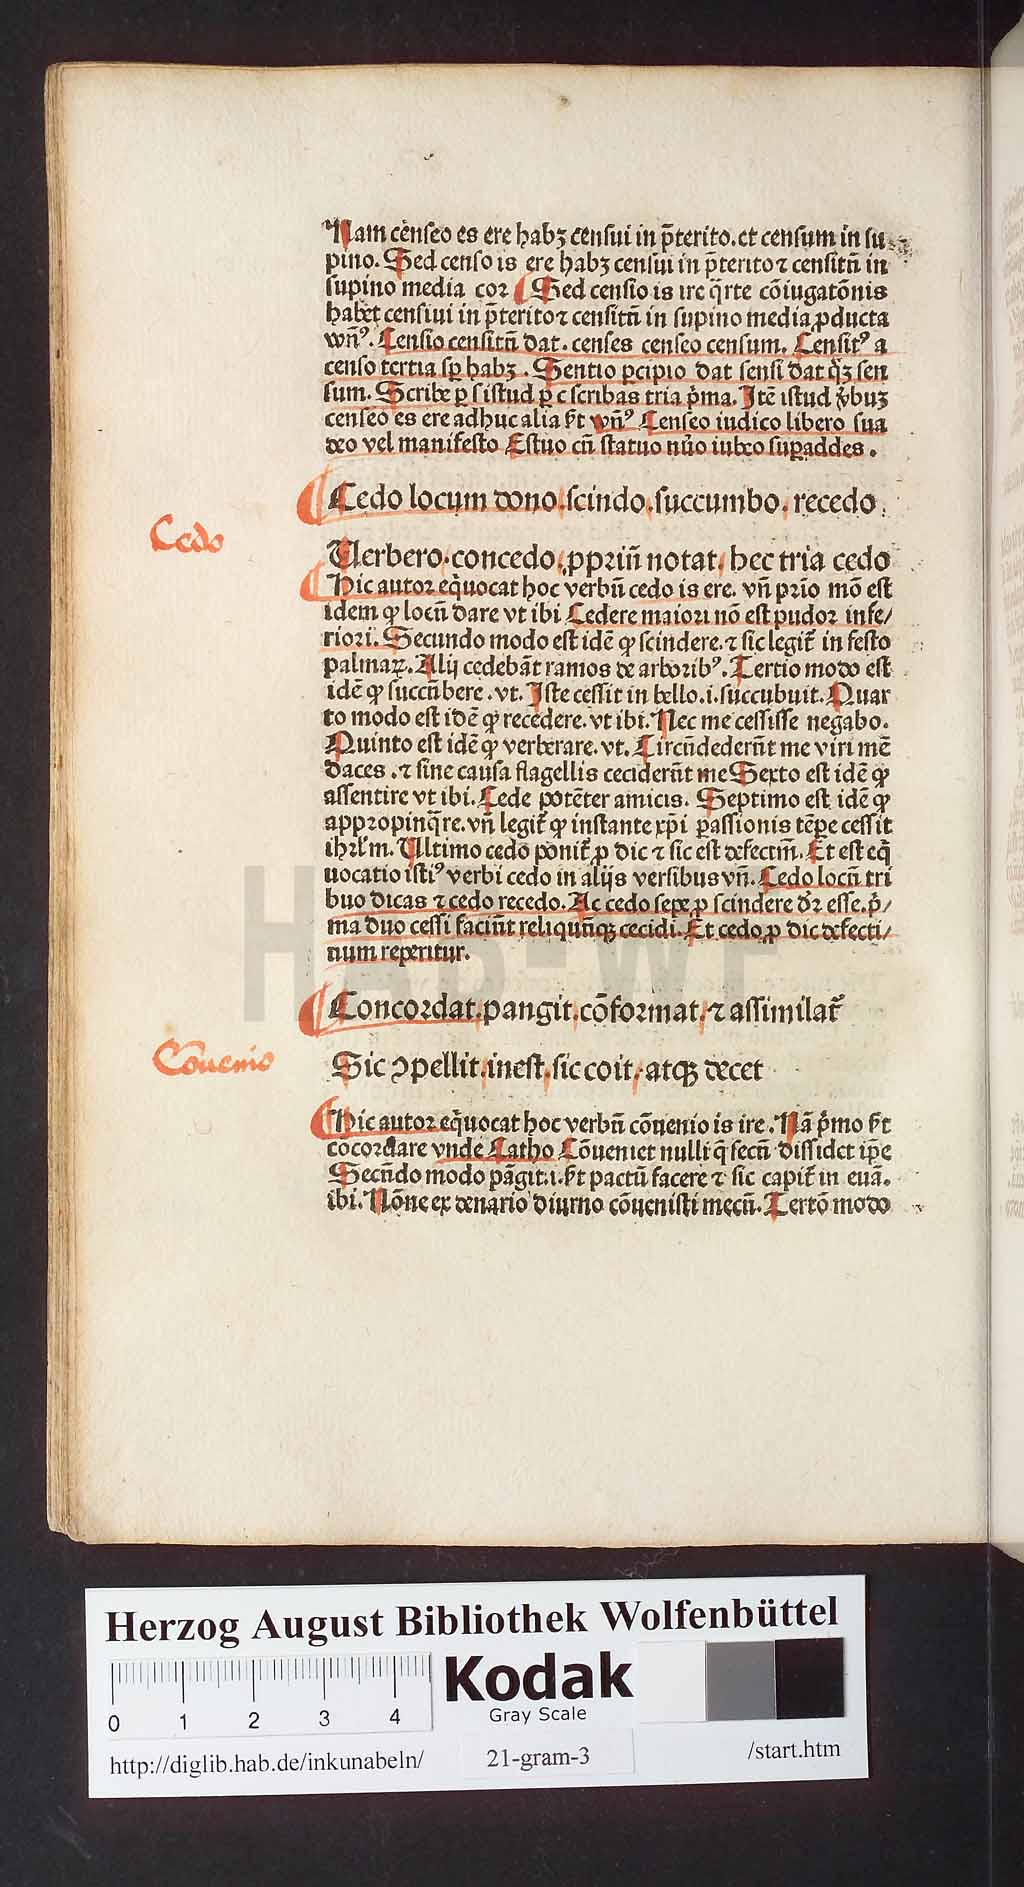 Nam cēnseo es ere habꝫ censui in p̄terito. et censum in su
pino. Sed censo is ere habꝫ censui in p̄terito ⁊ censitū in
supino media cor Sed censio is ire q̄rte cōiugatōnis
habet censiui in p̄terito ⁊ censitū in supino media ꝓducta
vnꝰ. Censio censitū dat. censes censeo censum. Censitꝰ a
censo tertia sꝑ habꝫ. Sentio ꝑcipio dat sensi dat qꝫ sen
sum. Scribe ꝑ s istud ꝑ c scribas tria p̄ma. Itē istud v̄buꝫ
censeo es ere adhuc alia hꝫt vnꝰ Censeo iudico libero sua
deo vel manifesto Estuo cū statuo nūo iubeo suꝑaddes.
Cedo locum dono. scindo. succumbo. recedo.
Cedo
Uerbero. concedo. ꝓpriū notat. hec tria cedo
Hic autor eq̄uocat hoc verbū cedo is ere. vn̄ prīo mō est
idem ꝙ locū dare vt ibi Cedere maiori nō est pudor infe/
riori. Secundo modo est idē ꝙ scindere. ⁊ sic legit̄ in festo
palmaꝝ. Alij cedebāt ramos de arboribꝰ. Tertio modo est
idē ꝙ succūbere. vt. Iste cessit in bello. i. succubuit. Quar
to modo est idē ꝙ recedere. vt ibi. Nec me cessisse negabo.
Quinto est idē ꝙ verberare. vt. Circūdederūt me viri mē
daces. ⁊ sine causa flagellis ceciderūt me Sexto est idē ꝙ
assentire vt ibi. Cede potēter amicis. Septimo est idē ꝙ
appropinq̄re. vn̄ legit̄ ꝙ instante xp̄i passionis tēpe cessit
ihrl̄m. Ultimo cedo ponit̄ ꝓ dic ⁊ sic est defectiū. Et est eq̄
uocatio istiꝰ verbi cedo in alijs versibus vn̄. Cedo locū tri
buo dicas ⁊ cedo recedo. Ac cedo sepe ꝓ scindere dr̄ esse. p̄/
ma duo cessi faciūt reliquūqꝫ cecidi. Et cedo ꝓ dic defecti/
uum reperitur.
Concordat. pangit. cōformat. ⁊ assimilat̄
Cōuenio
Sic ꝯpellit. inest. sic coit. atqꝫ decet
Hic autor eq̄uocat hoc verbū cōuenio is ire. Nā p̄mo hꝫt
cocordare vnde Catho Cōueniet nulli q̄ secū dissidet ip̄e
Secūdo modo pāgit. i. hꝫt pactū facere ⁊ sic capit̄ in euā.
ibi. Nōne ex denario diurno cōuenisti mecū. Tertō modo
Herzog August Bibliothek Wolfenbüttel
0 1 2 3 4
Kodak
Gray Scale
http://diglib.hab.de/inkunabeln/ 21-gram-3 /start.htm
HAB-WF